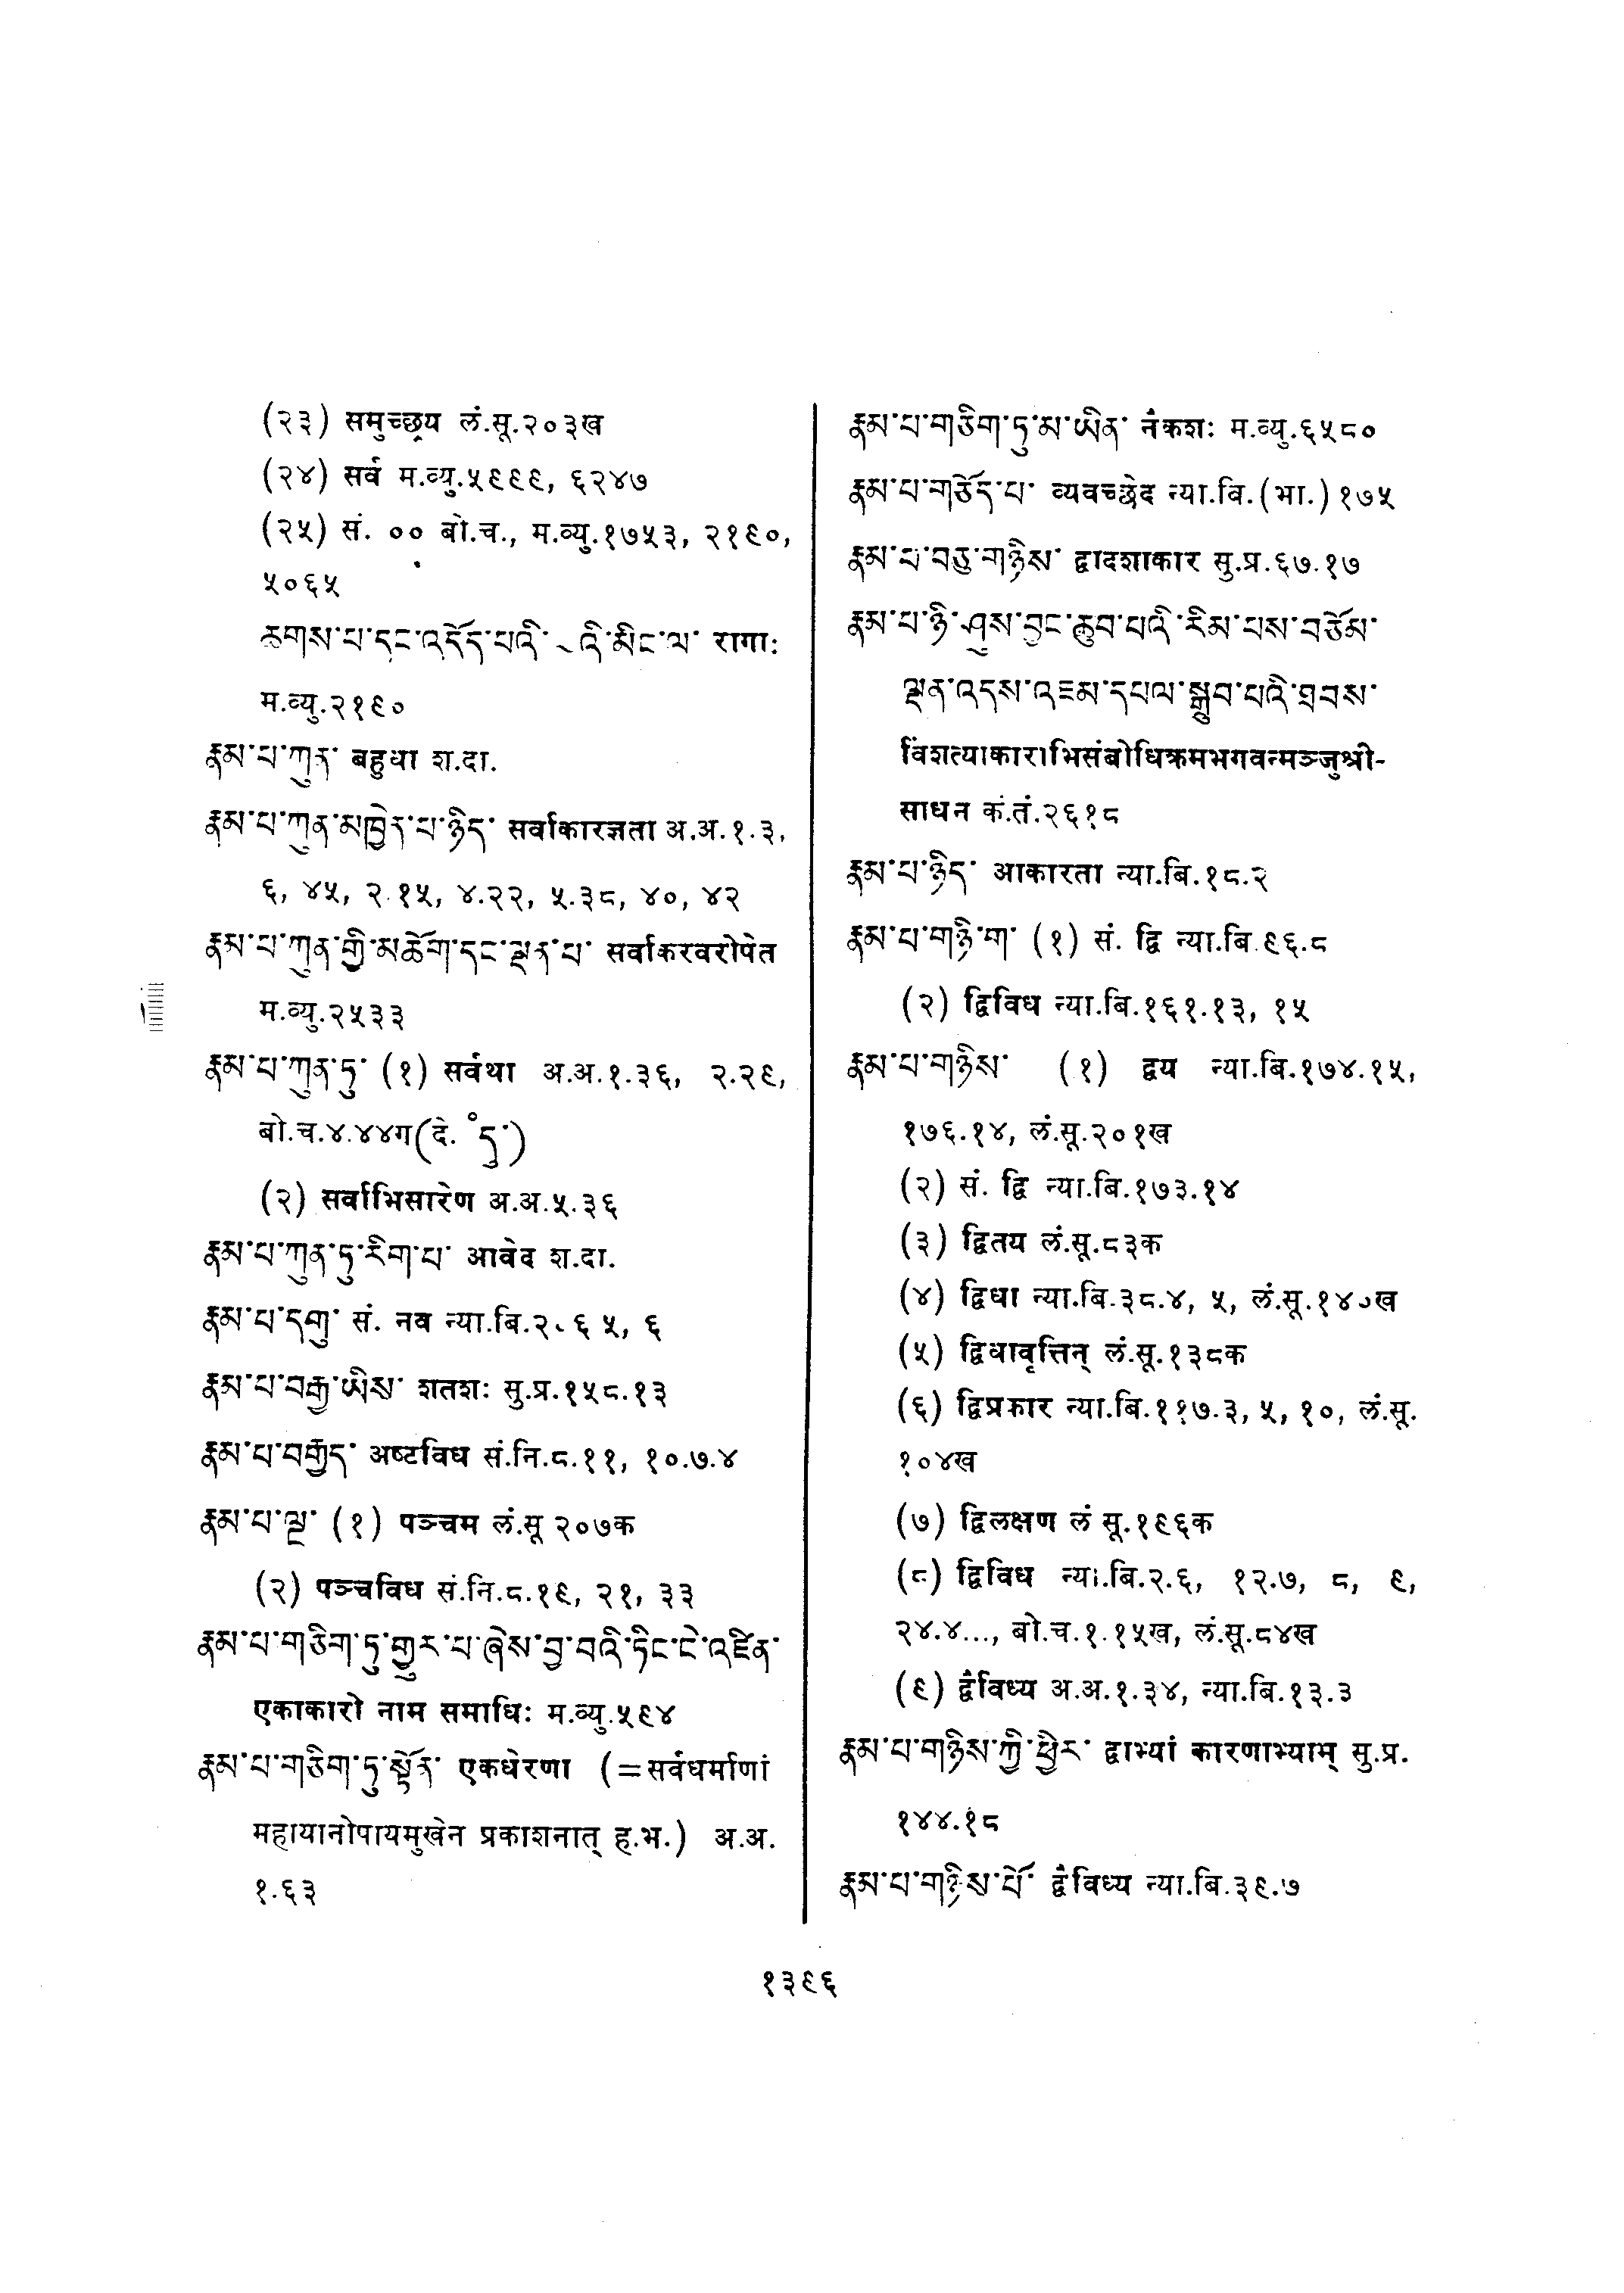 (२३) समुच्छ्रय लं.सू.२०३ख
(२४) सर्व म.व्यु.५९९९, ६२४७
(२५) सं. ०० बो.च., म.व्यु.१७५३, २१९०,
५०६५
ཆགས་པ་དང་འདོད་པའི་ འི་མིང་ལ་ रागाः
म.व्यु.२१९०
རྣམ་པ་ཀུན་ बहुधा श.दा.
རྣམ་པ་ཀུན་མཁྱེན་པ་ཉིད་ सर्वाकारज्ञता अ.अ.१.३,
६, ४५, २.१५, ४.२२, ५.३८, ४०, ४२
རྣམ་པ་ཀུན་གྱི་མཆོག་དང་ལྡན་པ་ सर्वाकरवरोपेत
म.व्यु.२५३३
རྣམ་པ་ཀུན་ཏུ་ (१) सर्वथा अ.अ.१.३६, २.२९,
बो.च.४.४४ग(दे. ॰དུ་)
(२) सर्वाभिसारेण अ.अ.५.३६
རྣམ་པ་ཀུན་ཏུ་རིག་པ་ आवेद श.दा.
རྣམ་པ་དགུ་ सं. नव न्या.बि.२ ६ ५, ६
རྣམ་པ་བརྒྱ་ཡིས་ शतशः सु.प्र.१५८.१३
རྣམ་པ་བརྒྱད་ अष्टविध सं.नि.८.११, १०.७.४
རྣམ་པ་ལྔ་ (१) पञ्चम लं.सू २०७क
(२) पञ्चविध सं.नि.८.१९, २१, ३३
རྣམ་པ་གཅིག་ཏུ་གྱུར་པ་ཞེས་བྱ་བའི་ཏིང་ངེ་འཛིན་
एकाकारो नाम समाधिः म.व्यु.५९४
རྣམ་པ་གཅིག་ཏུ་སྟོན་ एकधेरणा (=सर्वधर्माणां
महायानोपायमुखेन प्रकाशनात् ह.भ.) अ.अ.
१.६३
རྣམ་པ་གཅིག་ཏུ་མ་ཡིན་ नैकशः म.व्यु.६५८०
རྣམ་པ་གཅོད་པ་ व्यवच्छेद न्या.वि.(भा.)१७५
རྣམ་པ་བཅུ་གཉིས་ द्वादशाकार सु.प्र.६७.१७
རྣམ་པ་ཉི་ཤུས་བྱང་ཆུབ་པའི་རིམ་པས་བཅོམ་
ལྡན་འདས་འཇམ་དཔལ་སྒྲུབ་པའི་ཐབས་
विंशत्याकाराभिसंबोधिक्रमभगवन्मञ्जुश्री-
साधन क.तं.२६१८
རྣམ་པ་ཉིད་ आकारता न्या.बि.१८.२
རྣམ་པ་གཉི་ག་ (१) सं. द्वि न्या.बि.९६.८
(२) द्विविध न्या.बि.१६१.१३, १५
རྣམ་པ་གཉིས་ (१) द्वय न्या.बि.१७४.१५,
१७६.१४, लं.सू.२०१ख
(२) सं. द्वि न्या.बि.१७३.१४
(३) द्वितय लं.सू.८३क
(४) द्विधा न्या.बि.३८.४, ५, लं.सू.१४०ख
(५) द्विधावृत्तिन् लं.सू.१३८क
(६) द्विप्रकार न्या.बि.११७.३, ५, १०, लं.सू.
१०४ख
(७) द्विलक्षण लं सू.१९६क
(८) द्विविध न्या.बि.२.६, १२.७, ८, ९,
२४.४..., बो.च.१.१५ख, लं.सू.८४ख
(९) द्वैविध्य अ.अ.१.३४, न्या.बि.१३.३
རྣམ་པ་གཉིས་ཀྱི་ཕྱིར་ द्वाभ्यां कारणाभ्याम् सु.प्र.
१४४.१८
རྣམ་པ་གཉིས་པོ་ द्वैविध्य न्या.बि.३९.७
१३९६